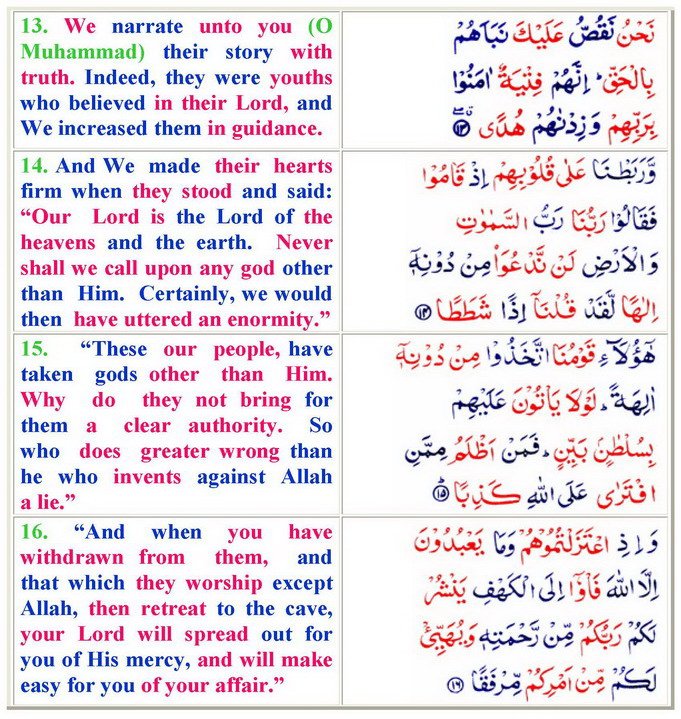 13. We narrate unto you (O
Muhammad) their story with
truth. Indeed, they were youths
who believed in their Lord, and
We increased them in guidance.
نَحْنُ نَقُصُّ عَلَيْكَ نَبَاَهُمْ
بِالْحَقِّ ؕ اِنَّهُمْ فِتْيَةٌ اٰمَنُوْا
بِرَبِّهِمْ وَزِدْنٰهُمْ هُدًى ۖ ۝۱۳
14. And We made their hearts
firm when they stood and said:
“Our Lord is the Lord of the
heavens and the earth. Never
shall we call upon any god other
than Him. Certainly, we would
then have uttered an enormity.”
وَّرَبَطْنَا عَلٰى قُلُوْبِهِمْ اِذْ قَامُوْا
فَقَالُوْا رَبُّنَا رَبُّ السَّمٰوٰتِ
وَالْاَرْضِ لَنْ نَّدْعُوَاۡ مِنْ دُوْنِهٖۤ
اِلٰهًا لَّقَدْ قُلْنَاۤ اِذًا شَطَطًا ۝۱۴
15. “These our people, have
taken gods other than Him.
Why do they not bring for
them a clear authority. So
who does greater wrong than
he who invents against Allah
a lie.”
هٰۤؤُلَآءِ قَوْمُنَا اتَّخَذُوْا مِنْ دُوْنِهٖۤ
اٰلِهَةً ؕ لَوْلَا يَاْتُوْنَ عَلَيْهِمْ
بِسُلْطٰنٍۭ بَيِّنٍ ؕ فَمَنْ اَظْلَمُ مِمَّنِ
افْتَرٰى عَلَى اللّٰهِ كَذِبًا ؕ ۝۱۵
16. “And when you have
withdrawn from them, and
that which they worship except
Allah, then retreat to the cave,
your Lord will spread out for
you of His mercy, and will make
easy for you of your affair.”
وَاِذِ اعْتَزَلْتُمُوْهُمْ وَمَا يَعْبُدُوْنَ
اِلَّا اللّٰهَ فَاْوٗۤا اِلَى الْكَهْفِ يَنْشُرْ
لَكُمْ رَبُّكُمْ مِّنْ رَّحْمَتِهٖ وَيُهَيِّئْ
لَكُمْ مِّنْ اَمْرِكُمْ مِّرْفَقًا ۝۱۶